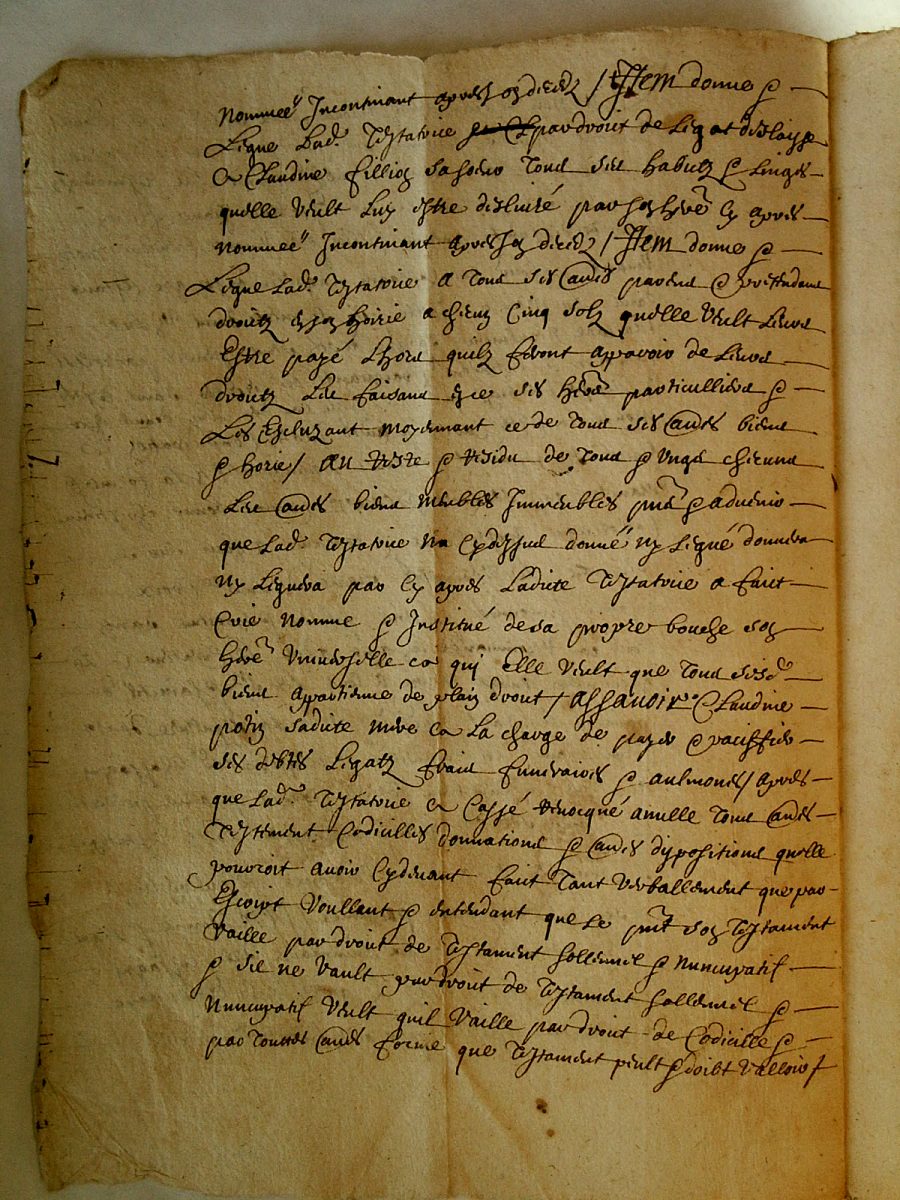 nommée Incontinant apres son deces / Item donne &
Legue Lad. Testatrice par droit de Legat et delaisse
a Claudine fillioz sa soeur tous ses habitz & Linges
quelle veult Luy estre deslivré par son here cy apres
nommee Incontinant apres son deces / Item donne &
Legue Lad. Testatrice a tous ses autres parens & prettendans
droitz en son hoirie a chacun Cinq solz quelle veult Leurs
Estre payé Lhors quilz feront apparoir de Leurs
droitz Les faisans en ce ses heres particulliers &
Les Excluzant moyennant ce de tous ses autres biens
& horie / Au reste & residu de tous & ungs chacuns
Les autres biens meubles Immeubles pnts & advenir
que Lad. Testatrice na cydessus donné ny Legué donnera
ny Leguera par cy apres Ladicte Testatrice a faict
Cree nomme & Institué de sa propre bouche son
here universelle ce qui Elle veult que tous sesd.
biens appartienne de plain droit / assavoir Claudine
potin sadicte mere a La charge de payer & paciffier
ses debtes Legatz fraix funeraires & aulmones / apres
que Lad. Testatrice a Cassé revocqué anulle tous autres
Testement Codicilles donnations & autres dispositions quelle
pourroit avoir Cydevant faict tant verballement que par
Escript voullant & entendant que Le pnt son Testament
vaille par droit de Testament sollemnel & nuncupatif
& sil ne vault par droit de Testament sollemnel &
nuncupatif veult quil vaille par droit de Codicille &
par touttes autres forme que Testament peult & doibt valloir /